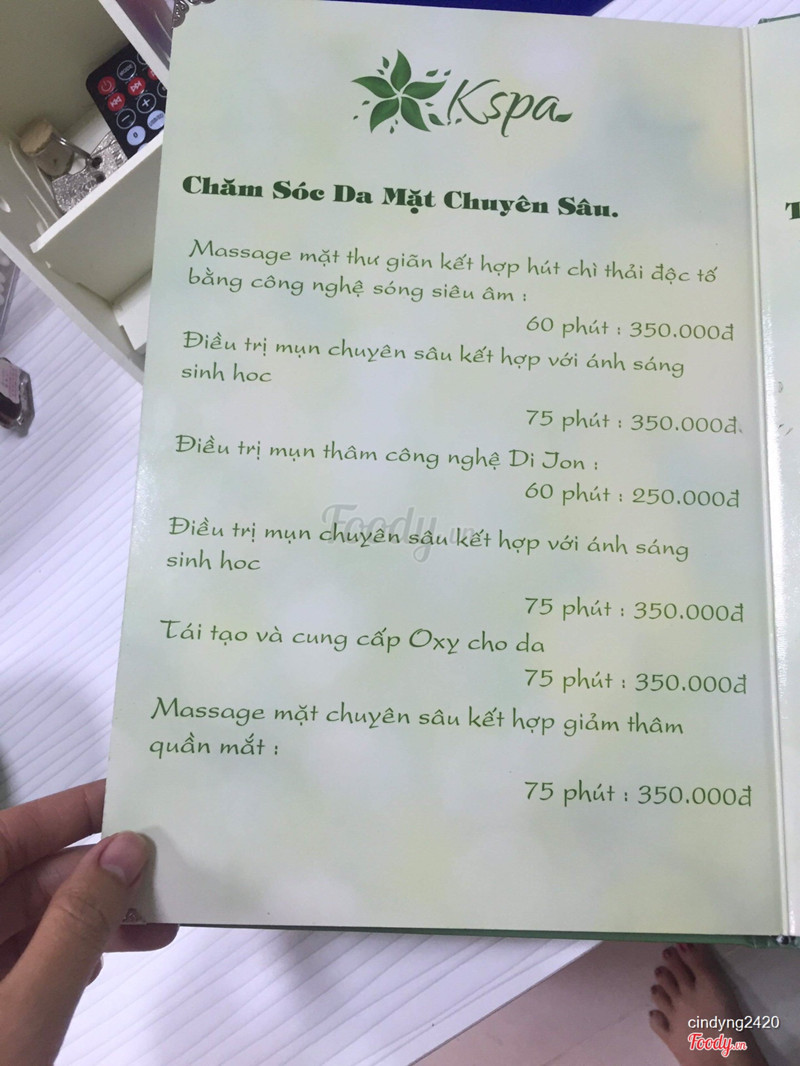 Kspa
Chăm Sóc Da Mặt Chuyên Sâu.
Massage mặt thư giãn kết hợp hút chì thải độc tố
bằng công nghệ sóng siêu âm :
60 phút : 350.000đ
Điều trị mụn chuyên sâu kết hợp với ánh sáng
sinh học
75 phút : 350.000đ
Điều trị mụn thâm công nghệ Di Jon :
60 phút : 250.000đ
Foody.vn
Điều trị mụn chuyên sâu kết hợp với ánh sáng
sinh học
75 phút : 350.000đ
Tái tạo và cung cấp Oxy cho da
75 phút : 350.000đ
Massage mặt chuyên sâu kết hợp giảm thâm
quần mắt :
75 phút : 350.000đ
cindyng2420
Foody.vn